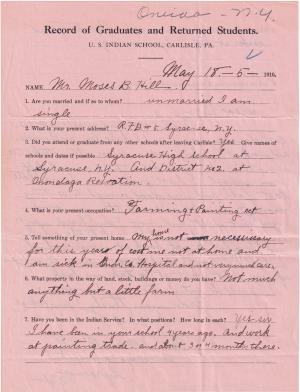 Oneida - N.Y.
Record of Graduates and Returned Students.
U. S. INDIAN SCHOOL, CARLISLE, PA.
May 18 - 5 - 1910.
NAME Mr. Moses B Hill
1. Are you married and if so to whom? unmarried I am
single
2. What is your present address? R.F.D # 5 Syracuse, N.Y.
3. Did you attend or graduate from any other schools after leaving Carlisle? Yes Give names
of schools and dates if possible Syracuse High School at
Syracuse, N.Y. And District No2. at
Onondaga Reservation.
4. What is your present occupation? Farming & Painting ect
5. Tell something of your present home My home is not necessary
for this years of cost me not at home and
I am sick in Onon. Co. Hospital and not
6. What property in the way of land, stock, buildings or money do you have? Not much
anything but a little farm
7. Have you been in the Indian Service? In what positions? How long in each? Yes sir
I have been in your school 4 years ago. And work
at painting trade. and about 3 or 4 months there.